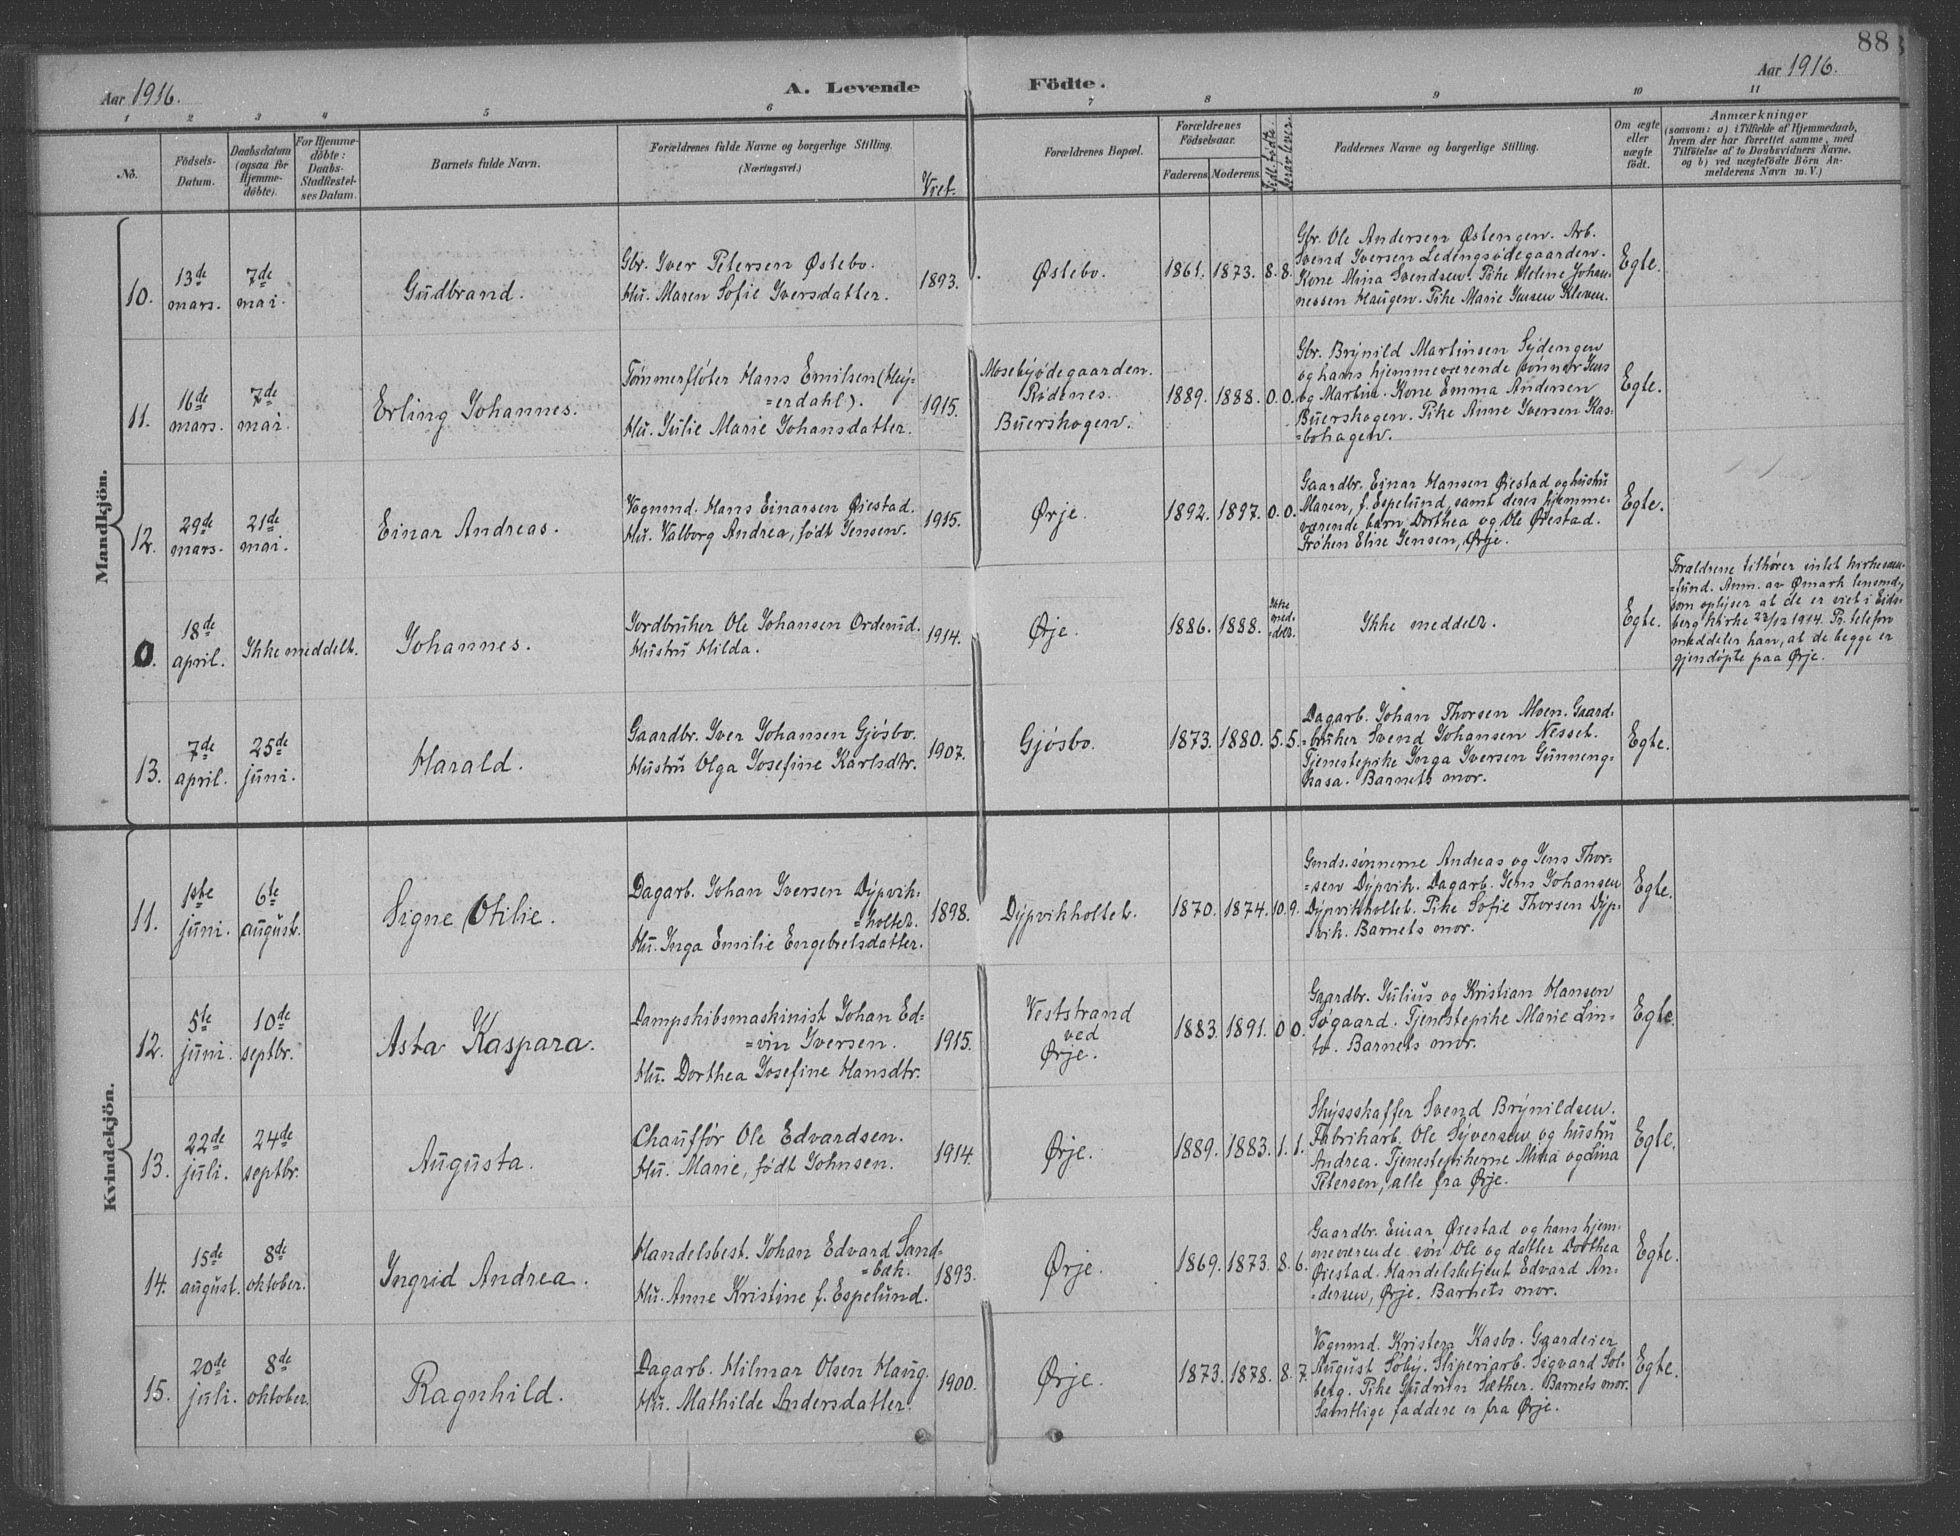 88
Aar 1916.
A. Levende Födte.
Aar 1916.
1 2 3 4 5 6 7 8 9 10 11
No.
Födsels-
Datum.
Daabsdatum
(ogsaa for
Hjemme-
döbte).
For Hjemme-
döbte:
Daabs-
Stadfæstel-
ses Datum.
Barnets fulde Navn.
Forældrenes fulde Navne og borgerlige Stilling.
(Næringsvei.)
Viet.
Forældrenes Bopæl.
Forældrenes
Födselsaar.
Faderens. Moderens.
Tidl. fødte.
herav lever.
Faddernes Navne og borgerlige Stilling.
Om ægte
eller
uægte
födt.
Anmærkninger
(saasom: a) i Tilfælde af Hjemmedaab,
hvem der har forrettet samme, med
Tilföielse af to Daabsvidners Navne,
og b) ved uægtefödte Börn An-
melderens Navn m. V.)
Mandkjön.
10.
13de
mars.
7de
mai.
Gudbrand.
Gbr. Iver Petersen Østebo.
Hu. Maren Sofie Iversdatter.
1893.
Østebo.
1861. 1873. 8. 8.
Gbr. Ole Andersen Østengen. Arb.
Svend Iversen Ledengsødegaarden.
Kone Mina Svendsen. Pike Helene Johan-
nessen Haugen. Pike Marie Jensen Kleven.
Egte.
11.
16de
mars.
7de
mai.
Erling Johannes.
Tømmerfløter Hans Emilsen (Hey-
=erdahl).
Hu. Julie Marie Johansdatter.
1915.
Mosebyødegaarden.
Rødenes.
Buerskogen.
1889. 1888. 0. 0.
Gbr. Brynild Martinsen Sydengen
og hans hjemmeværende sønner Jens
og Martin. Kone Emma Andersen
Buerskogen. Pike Anne Iversen Kas-
=bohagen.
Egte.
12.
29de
mars.
21de
mai.
Einar Andreas.
Vognmd. Hans Einarsen Øiestad.
Hu. Valborg Andrea, født Jensen.
1915.
Ørje.
1892. 1897. 0. 0.
Gaardbr. Einar Hansen Øiestad og hustru
Maren, f. Espelund, samt deres hjemme-
værende barn Dorthea og Ole Øiestad.
Frøken Elise Jensen, Ørje.
Egte.
0.
18de
april.
Ikke meddelt.
Johannes.
Jordbruker Ole Johansen Orderud.
Hustru Hilda.
1914.
Ørje.
1886. 1888.
Ikke
med-
=delt.
Ikke meddelt.
Egte.
Forældrene tilhører intet kirkesam-
=fund. Anm. av Ømark lensmd,
som oplyser at de er viet i Eids-
berg kirke 22/12 1914. Pr. telefon
meddeler han, at de begge er
gjendøpte paa Ørje.
13.
7de
april.
25de
juni.
Harald.
Gaardbr. Iver Johansen Gjøsbo.
Hustru Olga Josefine Karlsdtr.
1907.
Gjøsbo.
1873. 1880. 5. 5.
Dagarb. Johan Thorsen Moen. Gaard-
=bruker Svend Johansen Nesset.
Tjenestepike Inga Iversen Gunneng-
kasa. Barnets mor.
Egte.
Kvindekjön.
11.
1ste
juni.
6te
august.
Signe Otilie.
Dagarb. Johan Iversen Dypvik-
=holtet.
Hu. Inga Emilie Engebretsdatter.
1898.
Dypvikholtet.
1870. 1874. 10. 9.
Gmds.sønnerne Andreas og Jens Thor-
=sen Dypvik. Dagarb. Jens Johansen
Dypvikholtet. Pike Sofie Thorsen Dyp-
=vik. Barnets mor.
Egte.
12.
5te
juni.
10de
septbr.
Asta Kaspara.
Dampskibsmaskinist Johan Ed-
=vin Iversen.
Hu. Dorthea Josefine Hansdtr.
1915.
Veststrand
ved
Ørje.
1883. 1891. 0 0.
Gaardbr. Julius og Kristian Hansen
Søgaard. Tjenestepike Marie Lin-
to. Barnets mor.
Egte.
13.
22de
juli.
24de
septbr.
Augusta.
Chauffør Ole Edvardsen.
Hu. Marie, født Johnsen.
1914.
Ørje.
1889. 1883. 1. 1.
Skyssskaffer Svend Brynildsen.
Fabrikarb. Ole Syversen og hustru
Andrea. Tjenestepikerne Mina og Lina
Petersen, alle fra Ørje.
Egte.
14.
15de
august.
8de
oktober.
Ingrid Andrea.
Handelsbest. Johan Edvard Sand-
=bæk.
Hu. Anne Kristine f. Espelund.
1893.
Ørje.
1869. 1873. 8. 6.
Gaardbr. Einar Øiestad og hans hjem-
meværende søn Ole og datter Dorthea
Øiestad. Handelsbetjent Edvard An-
=dersen, Ørje. Barnets mor.
Egte.
15.
20de
juli.
8de
oktober.
Ragnhild.
Dagarb. Hilmar Olsen Haug.
Hu. Mathilde Andersdatter.
1900.
Ørje.
1873. 1878. 8. 7.
Vognmd. Kristen Kasbo. Gaardeier
August Søby. Sliperiarb. Sigvard Sol-
berg. Pike Gudrun Sæther. Barnets mor.
Samtlige faddere er fra Ørje.
Egte.